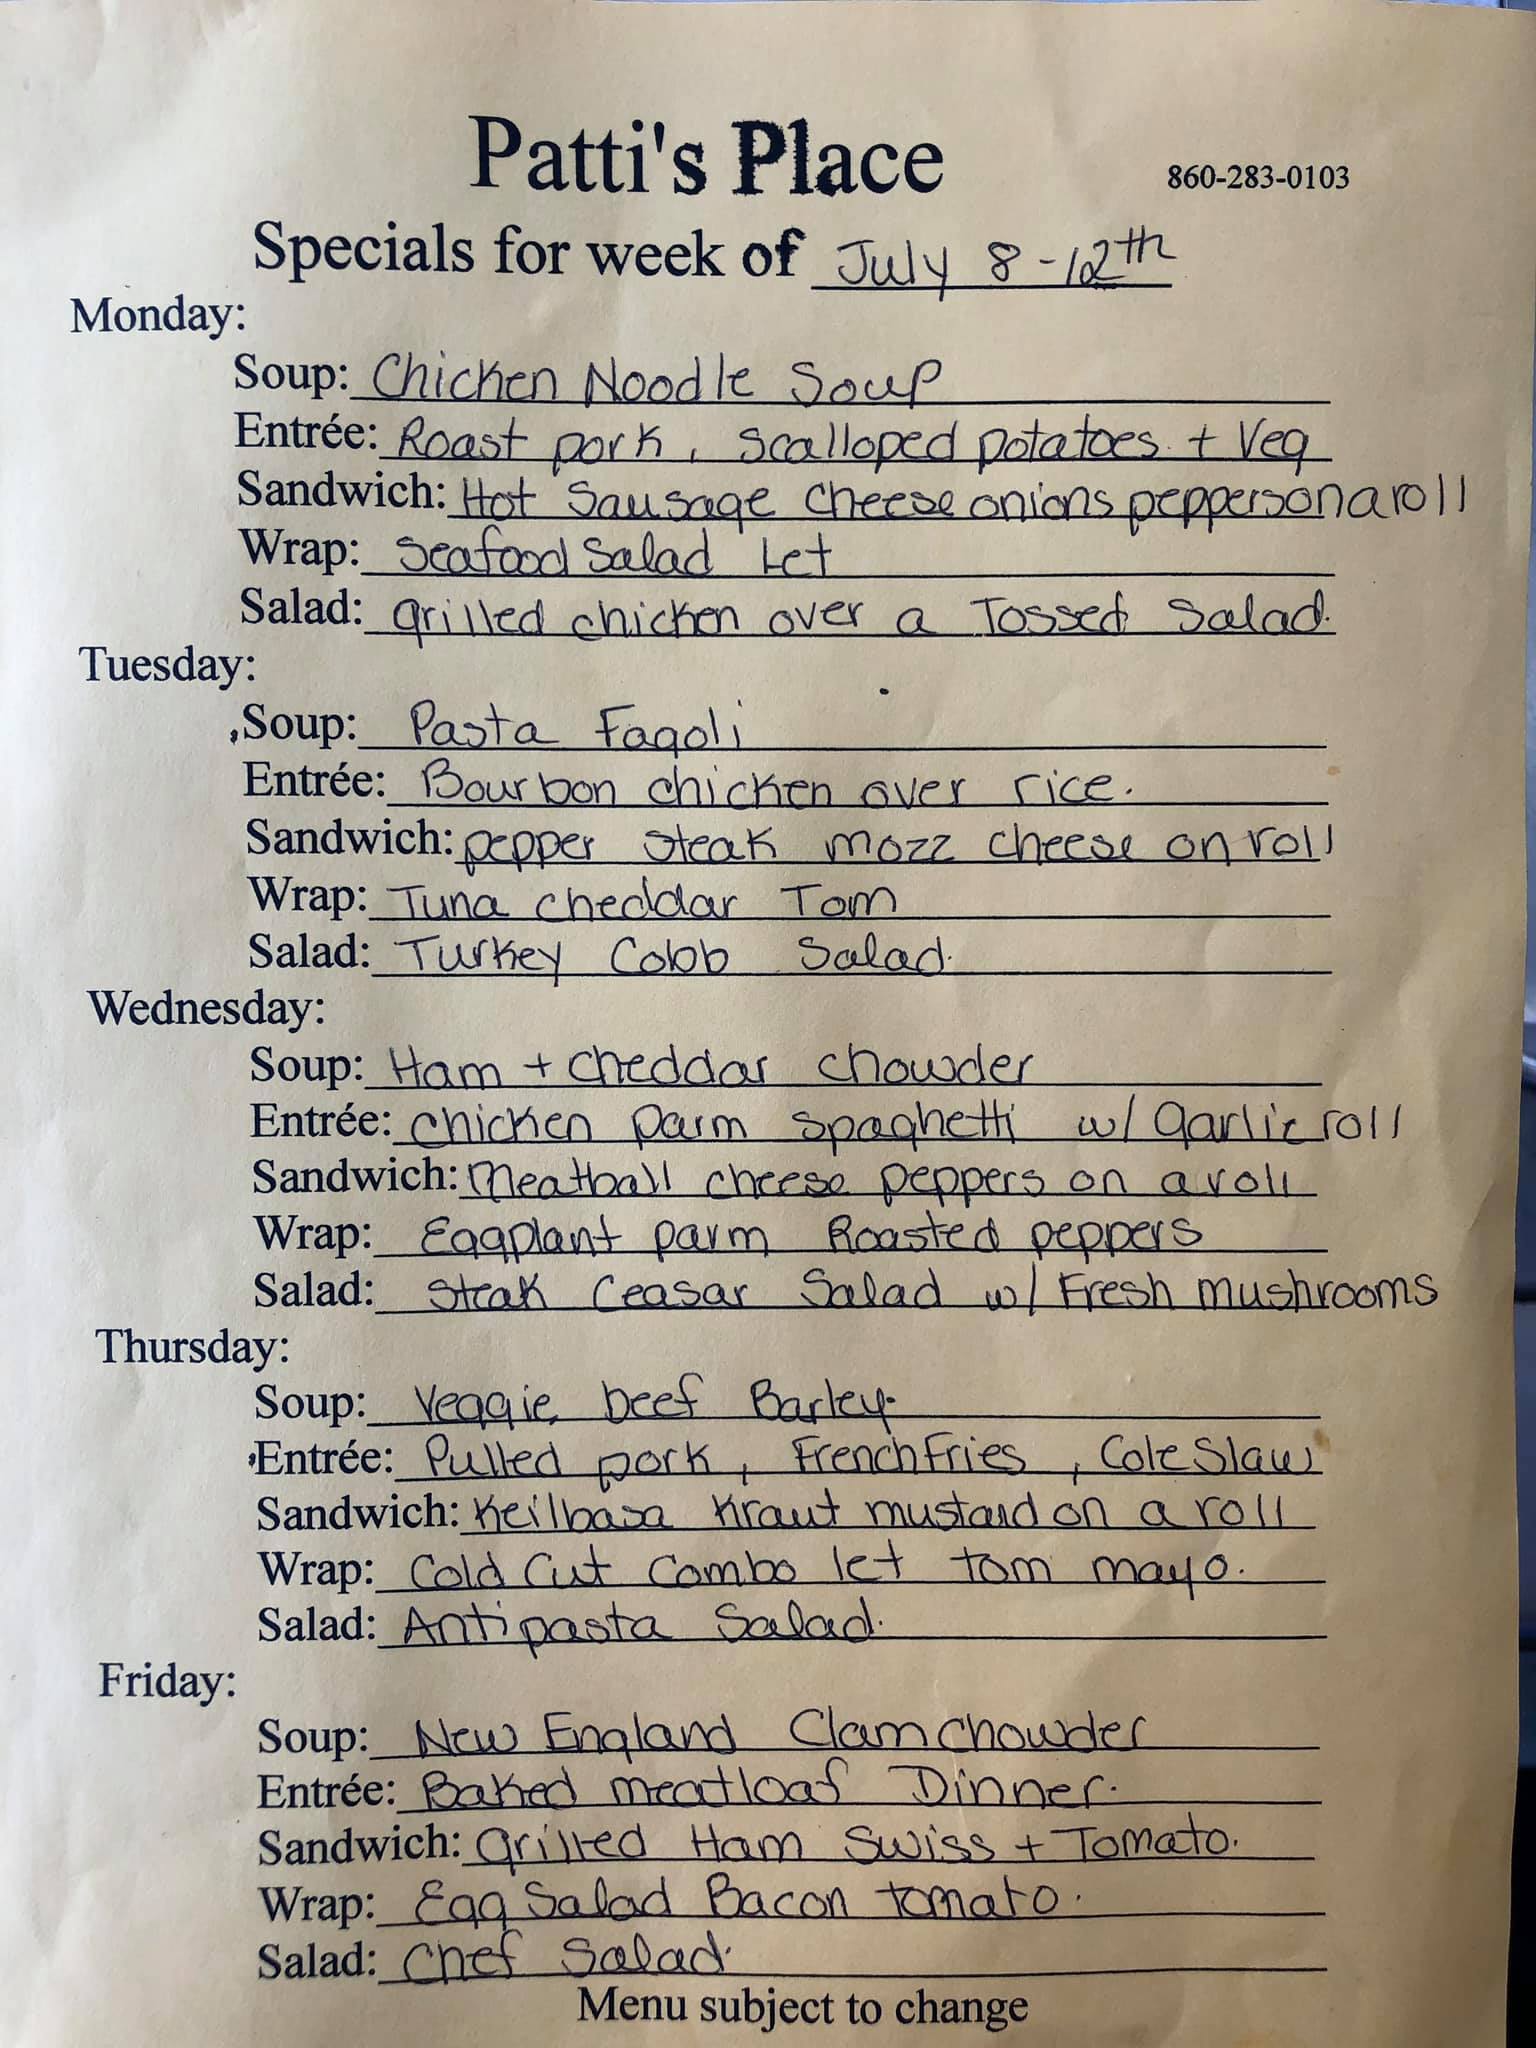 Patti's Place
860-283-0103
Specials for week of July 8-12th
Monday:
Soup: Chicken Noodle Soup
Entrée: Roast pork, scalloped potatoes + Veg
Sandwich: Hot Sausage cheese onions peppers on a roll
Wrap: Seafood Salad Let
Salad: grilled chicken over a Tossed Salad.
Tuesday:
Soup: Pasta Fagoli
Entrée: Bourbon chicken over rice.
Sandwich: pepper steak mozz cheese on roll
Wrap: Tuna cheddar Tom
Salad: Turkey Cobb Salad.
Wednesday:
Soup: Ham + cheddar chowder
Entrée: chicken parm spaghetti w/ garlic roll
Sandwich: Meatball cheese peppers on a roll
Wrap: Eggplant parm Roasted peppers
Salad: Steak Ceasar Salad w/ Fresh mushrooms
Thursday:
Soup: Veggie beef Barley.
Entrée: Pulled pork, French Fries, Cole Slaw
Sandwich: Keilbasa Kraut mustard on a roll
Wrap: Cold Cut Combo let tom mayo.
Salad: Antipasta Salad.
Friday:
Soup: New England Clam chowder
Entrée: Baked meatloaf Dinner.
Sandwich: grilled Ham Swiss + Tomato.
Wrap: Egg Salad Bacon tomato.
Salad: Chef Salad.
Menu subject to change